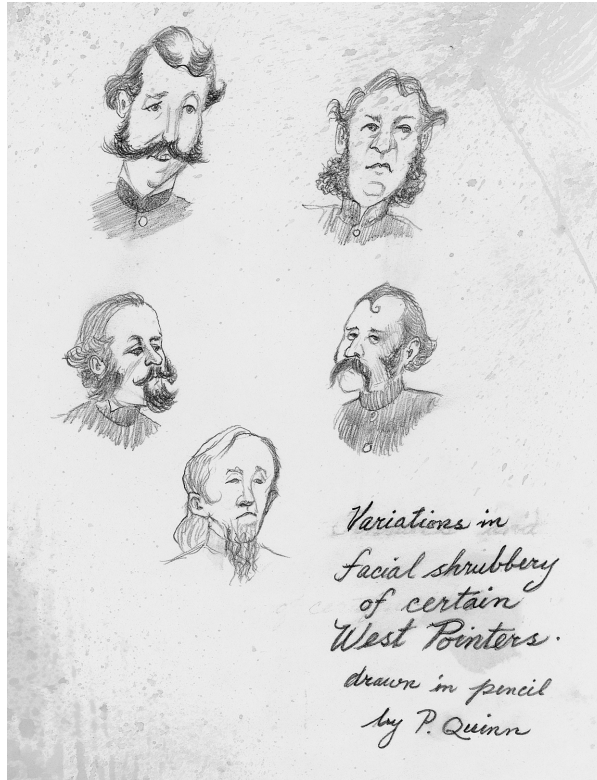 Variations in
facial shrubbery
of certain
West Pointers.
drawn in pencil
by P. Quinn